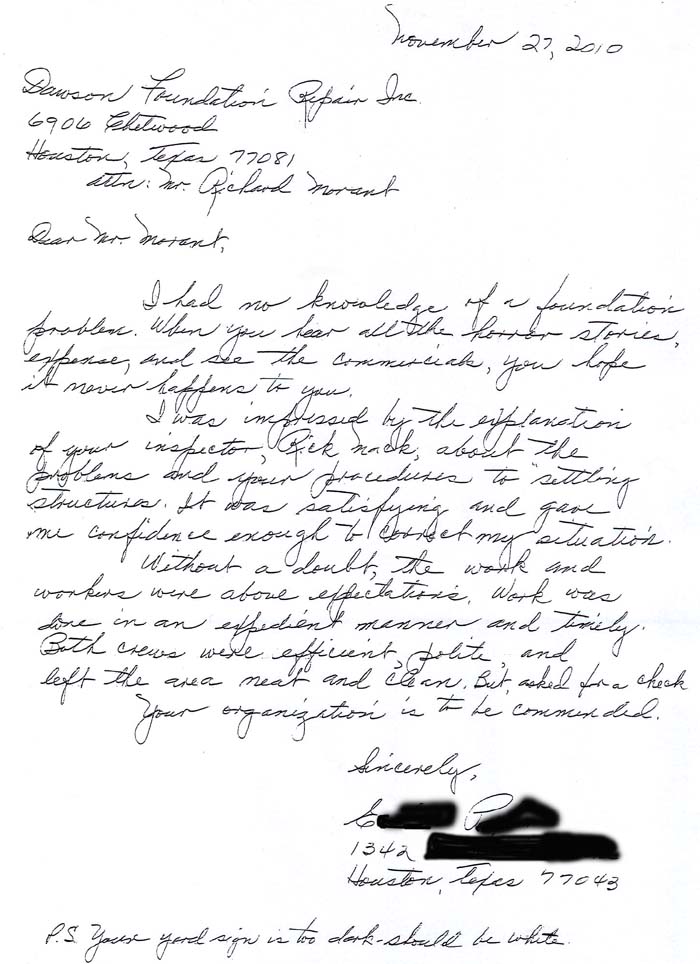 November 27, 2010
Dawson Foundation Repair Inc.
6906 Chetwood
Houston, Texas 77081
attn: Mr. Richard Morant
Dear Mr. Morant,
I had no knowledge of a foundation
problem. When you hear all the horror stories,
expense, and see the commercials, you hope
it never happens to you.
I was impressed by the explanation
of your inspector, Rick Mack, about the
problems and your procedures to "settling
structures. It was satisfying and gave
me confidence enough to correct my situation.
Without a doubt, the work and
workers were above expectations. Work was
done in an expedient manner and timely.
Both crews were efficient, polite, and
left the area neat and clean. But, asked for a check
Your organization is to be commended.
Sincerely,
1342
Houston, Texas 77043
P.S. Your yard sign is too dark-should be white.